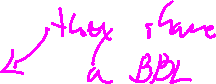 they have
a BBL